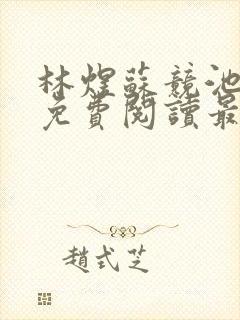 林煜蘇競池
免費閱讀最
趙式芝